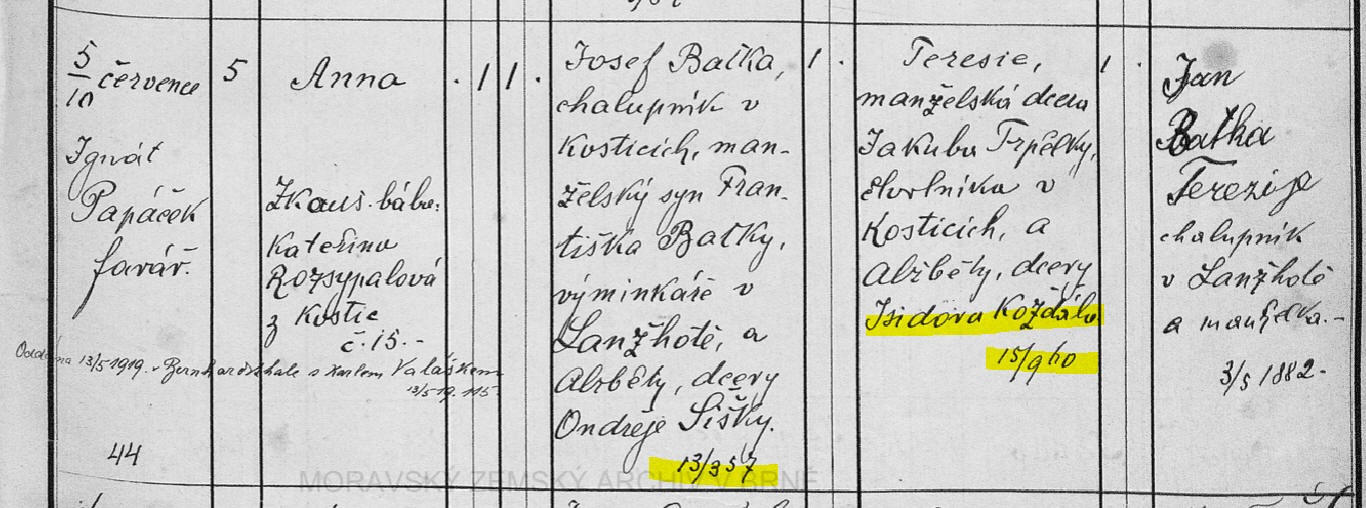 5/10 července
Ignát
Papáček
farář.
44
5
Anna
Zkouš. bába:
Kateřina
Rozsypalová
z Kostic
č. 15.-
Oddána 13/5 1919. v Bernhardsthale s Karlem Valáškem
13/5 19. 115.
. 1 1 .
Josef Baťka,
chalupník v
Kosticích, man-
želský syn Fran-
tiška Baťky,
výminkáře v
Lanžhotě, a
Alžběty, dcery
Ondřeje Šišky.
13/3 57
1 .
Teresie,
manželská dcera
Jakuba Trpělky,
čtvrtníka v
Kosticích, a
Alžběty, dcery
Isidora Koždála
15/9 60
1 .
Jan
Baťka
Terezije
chalupník
v Lanžhotě
a manželka.-
3/5 1882.
MORAVSKÝ ZEMSKÝ ARCHIV V BRNĚ